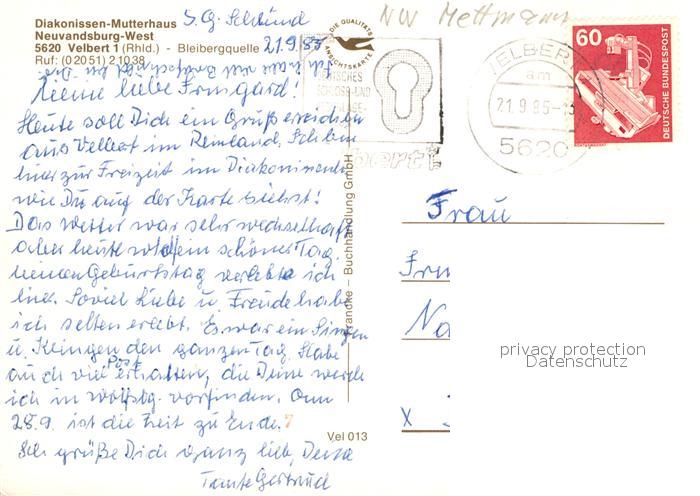 Diakonissen-Mutterhaus
Neuvandsburg-West
5620 Velbert 1 (Rhld.) - Bleibergquelle 21.9.85
Ruf: (0 20 51) 2 10 38
Meine liebe Irmgard!
Heute soll Dich ein Gruß erreichen
aus Velbert im Reinland. Ich bin
hier zur Freizeit im Diakonissenh
wie Du auf der Karte siehst!
Das Wetter war sehr wechselhaft
aber heute wird ein schöner Tag.
meinen Geburtstag verlebte ich
hier. Soviel Liebe u. Freude habe
ich selten erlebt. Es war ein Singen
u. Klingen den ganzen Tag. Habe
auch viel Post erhalten, die Deine werde
ich in Wolfsbg. vorfinden. Am
28.9. ist die Zeit zu Ende.
Ich grüße Dich ganz lieb, Deine
Tante Gertrud
Vel 013
Francke - Buchhandlung GmbH
DIE QUALITÄTS
ANSICHTSKARTE
NW Mettmann
SCHLOSS- UND
VELBERT
am
21.9.85-1
5620
60
DEUTSCHE BUNDESPOST
Frau
Na
x
privacy protection
Datenschutz